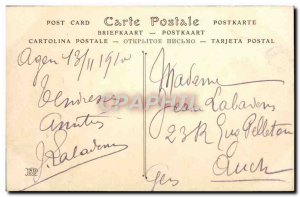 POST CARD Carte Postale POSTKARTE
BRIEFKAART - POSTKAART
CARTOLINA POSTALE - ОТКРЫТОЕ ПИСЬМО - TARJETA POSTAL
Agen 13/11 1910
Tendres
Amitiés
J. Labadens
Madame
Jean Labadens
23 R Eug Pelletan
Auch
Gers